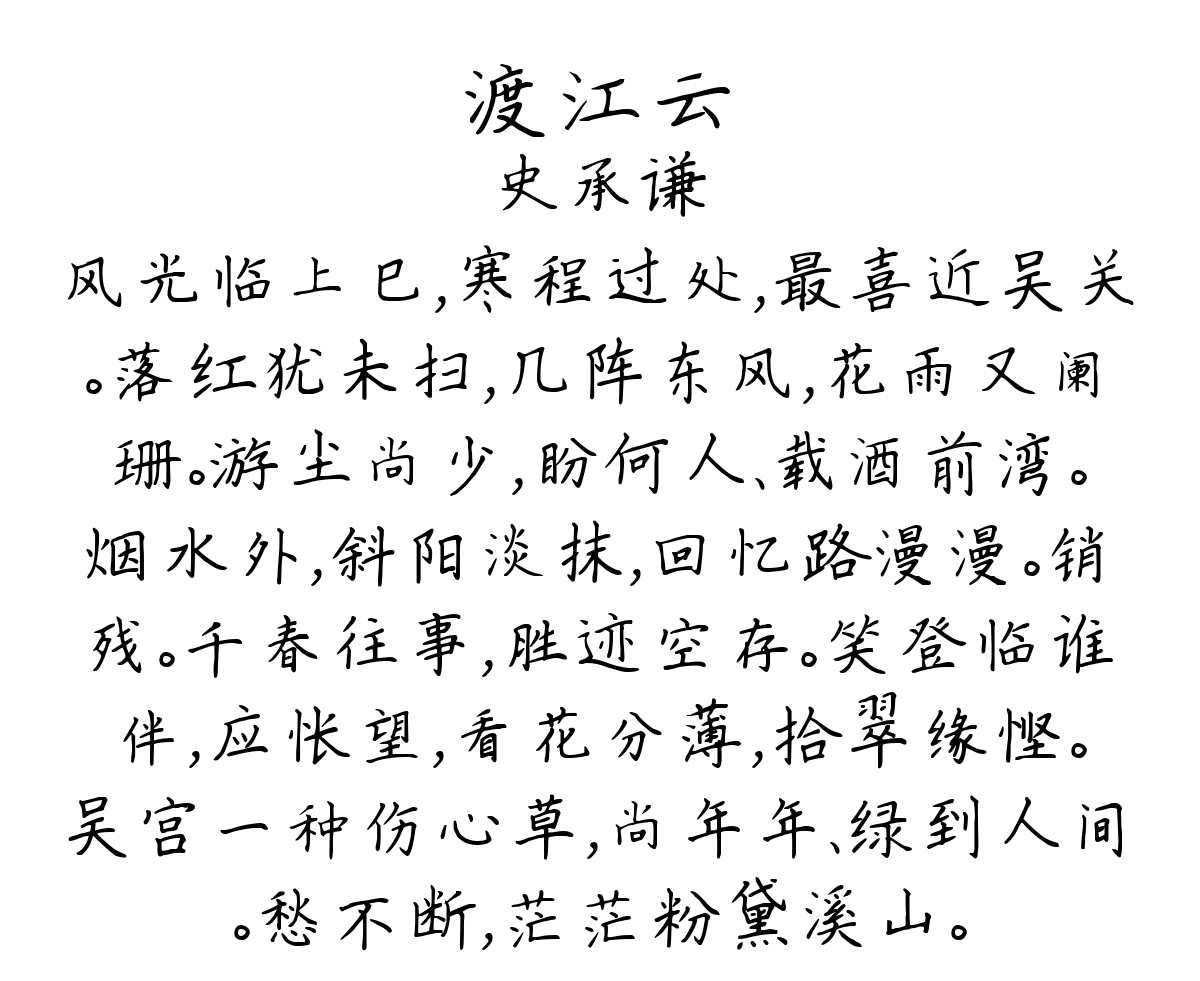 渡江云
史承谦
风光临上巳,寒程过处,最喜近吴关
。落红犹未扫,几阵东风,花雨又阑
珊。游尘尚少,盼何人、载酒前湾。
烟水外,斜阳淡抹,回忆路漫漫。销
残。千春往事,胜迹空存。笑登临谁
伴,应怅望,看花分薄,拾翠缘悭。
吴宫一种伤心草,尚年年、绿到人间
。愁不断,茫茫粉黛溪山。